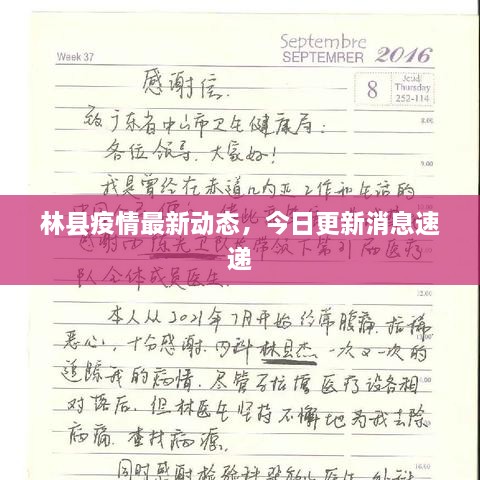 Septembre
Week 37
SEPTEMBER 2016
8
Jeudi
Thursday
252-114
感谢信
8.00
致广东省中山市卫生健康局:
各位领导、大家好!
我是曾经在赤道几内亚工作和生活的
林县疫情最新动态，今日更新消息速
递
队全体成员医生。
本人从2021年7月开始经常腹痛、拉稀
恶心,十分感谢内科林县杰一次又一次的
追踪我的病情。尽管马拉博医疗设备相
对落后,但林医生坚持不懈地为我去除
病痛、查找病源。
同时感谢检验科
医生、外科